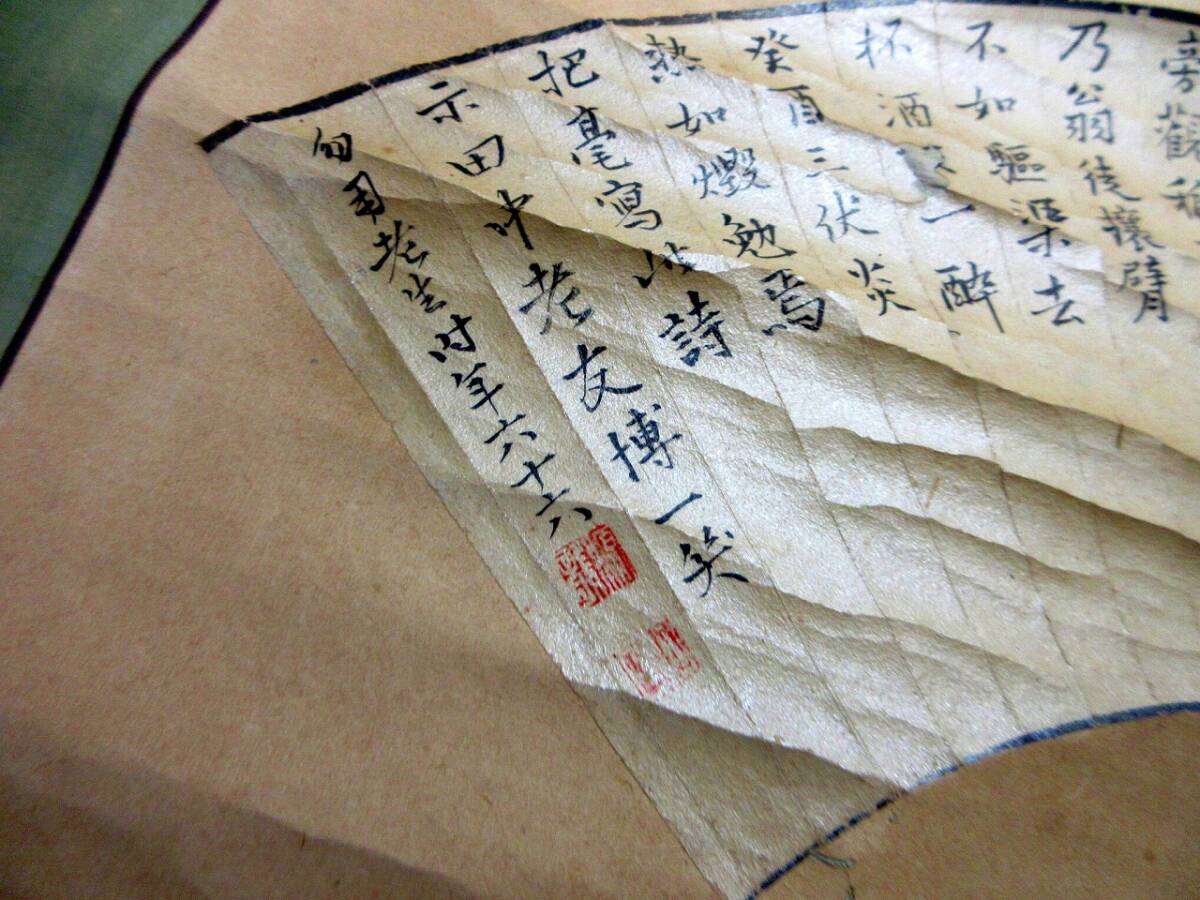 旁觀
乃翁徒攘臂
不如驅渠去
杯酒一醉
癸酉三伏炎
熱如燬勉焉
把毫寫此詩
示田中老友博一笑
勿用老生时年六十六